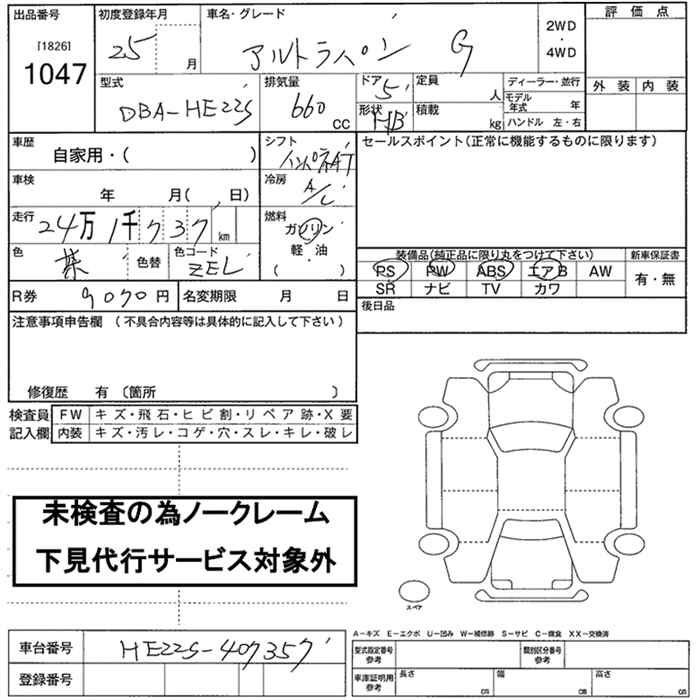 出品番号 初度登録年月 車名・グレード 2WD・4WD 評価点
[1826] 1047 25 月 アルトラパン G
型式 排気量 ドア 定員 ディーラー・並行 外装 内装
DBA-HE22S 660 CC 5 人 モデル年式 年
形状 HB 積載 kg ハンドル 左・右
車歴 シフト セールスポイント(正常に機能するものに限ります)
自家用・( ) インパネAT
車検 冷房
年 月( 、日) A/C
走行 燃料
24万 1千 7 3 7 km ガソリン
軽・油
( )
色 茶 色替 色コード ZEL
装備品(純正品に限り丸をつけて下さい) 新車保証書
PS PW ABS エアB AW 有・無
SR ナビ TV カワ
R券 9070円 名変期限 月 日 後日品
注意事項申告欄 (不具合内容等は具体的に記入して下さい)
修復歴 有 〔箇所 〕
検査員 FW キズ・飛石・ヒビ割・リペア跡・X要
記入欄 内装 キズ・汚レ・コゲ・穴・スレ・キレ・破レ
未検査の為ノークレーム
下見代行サービス対象外
スペア
A-キズ E-エクボ U-凹み W-補修跡 S-サビ C-腐食 XX-交換済
車台番号 HE22S-407357
型式指定番号 参考 類別区分番号 参考
登録番号
車庫証明用 参考 長さ cm 幅 cm 高さ cm